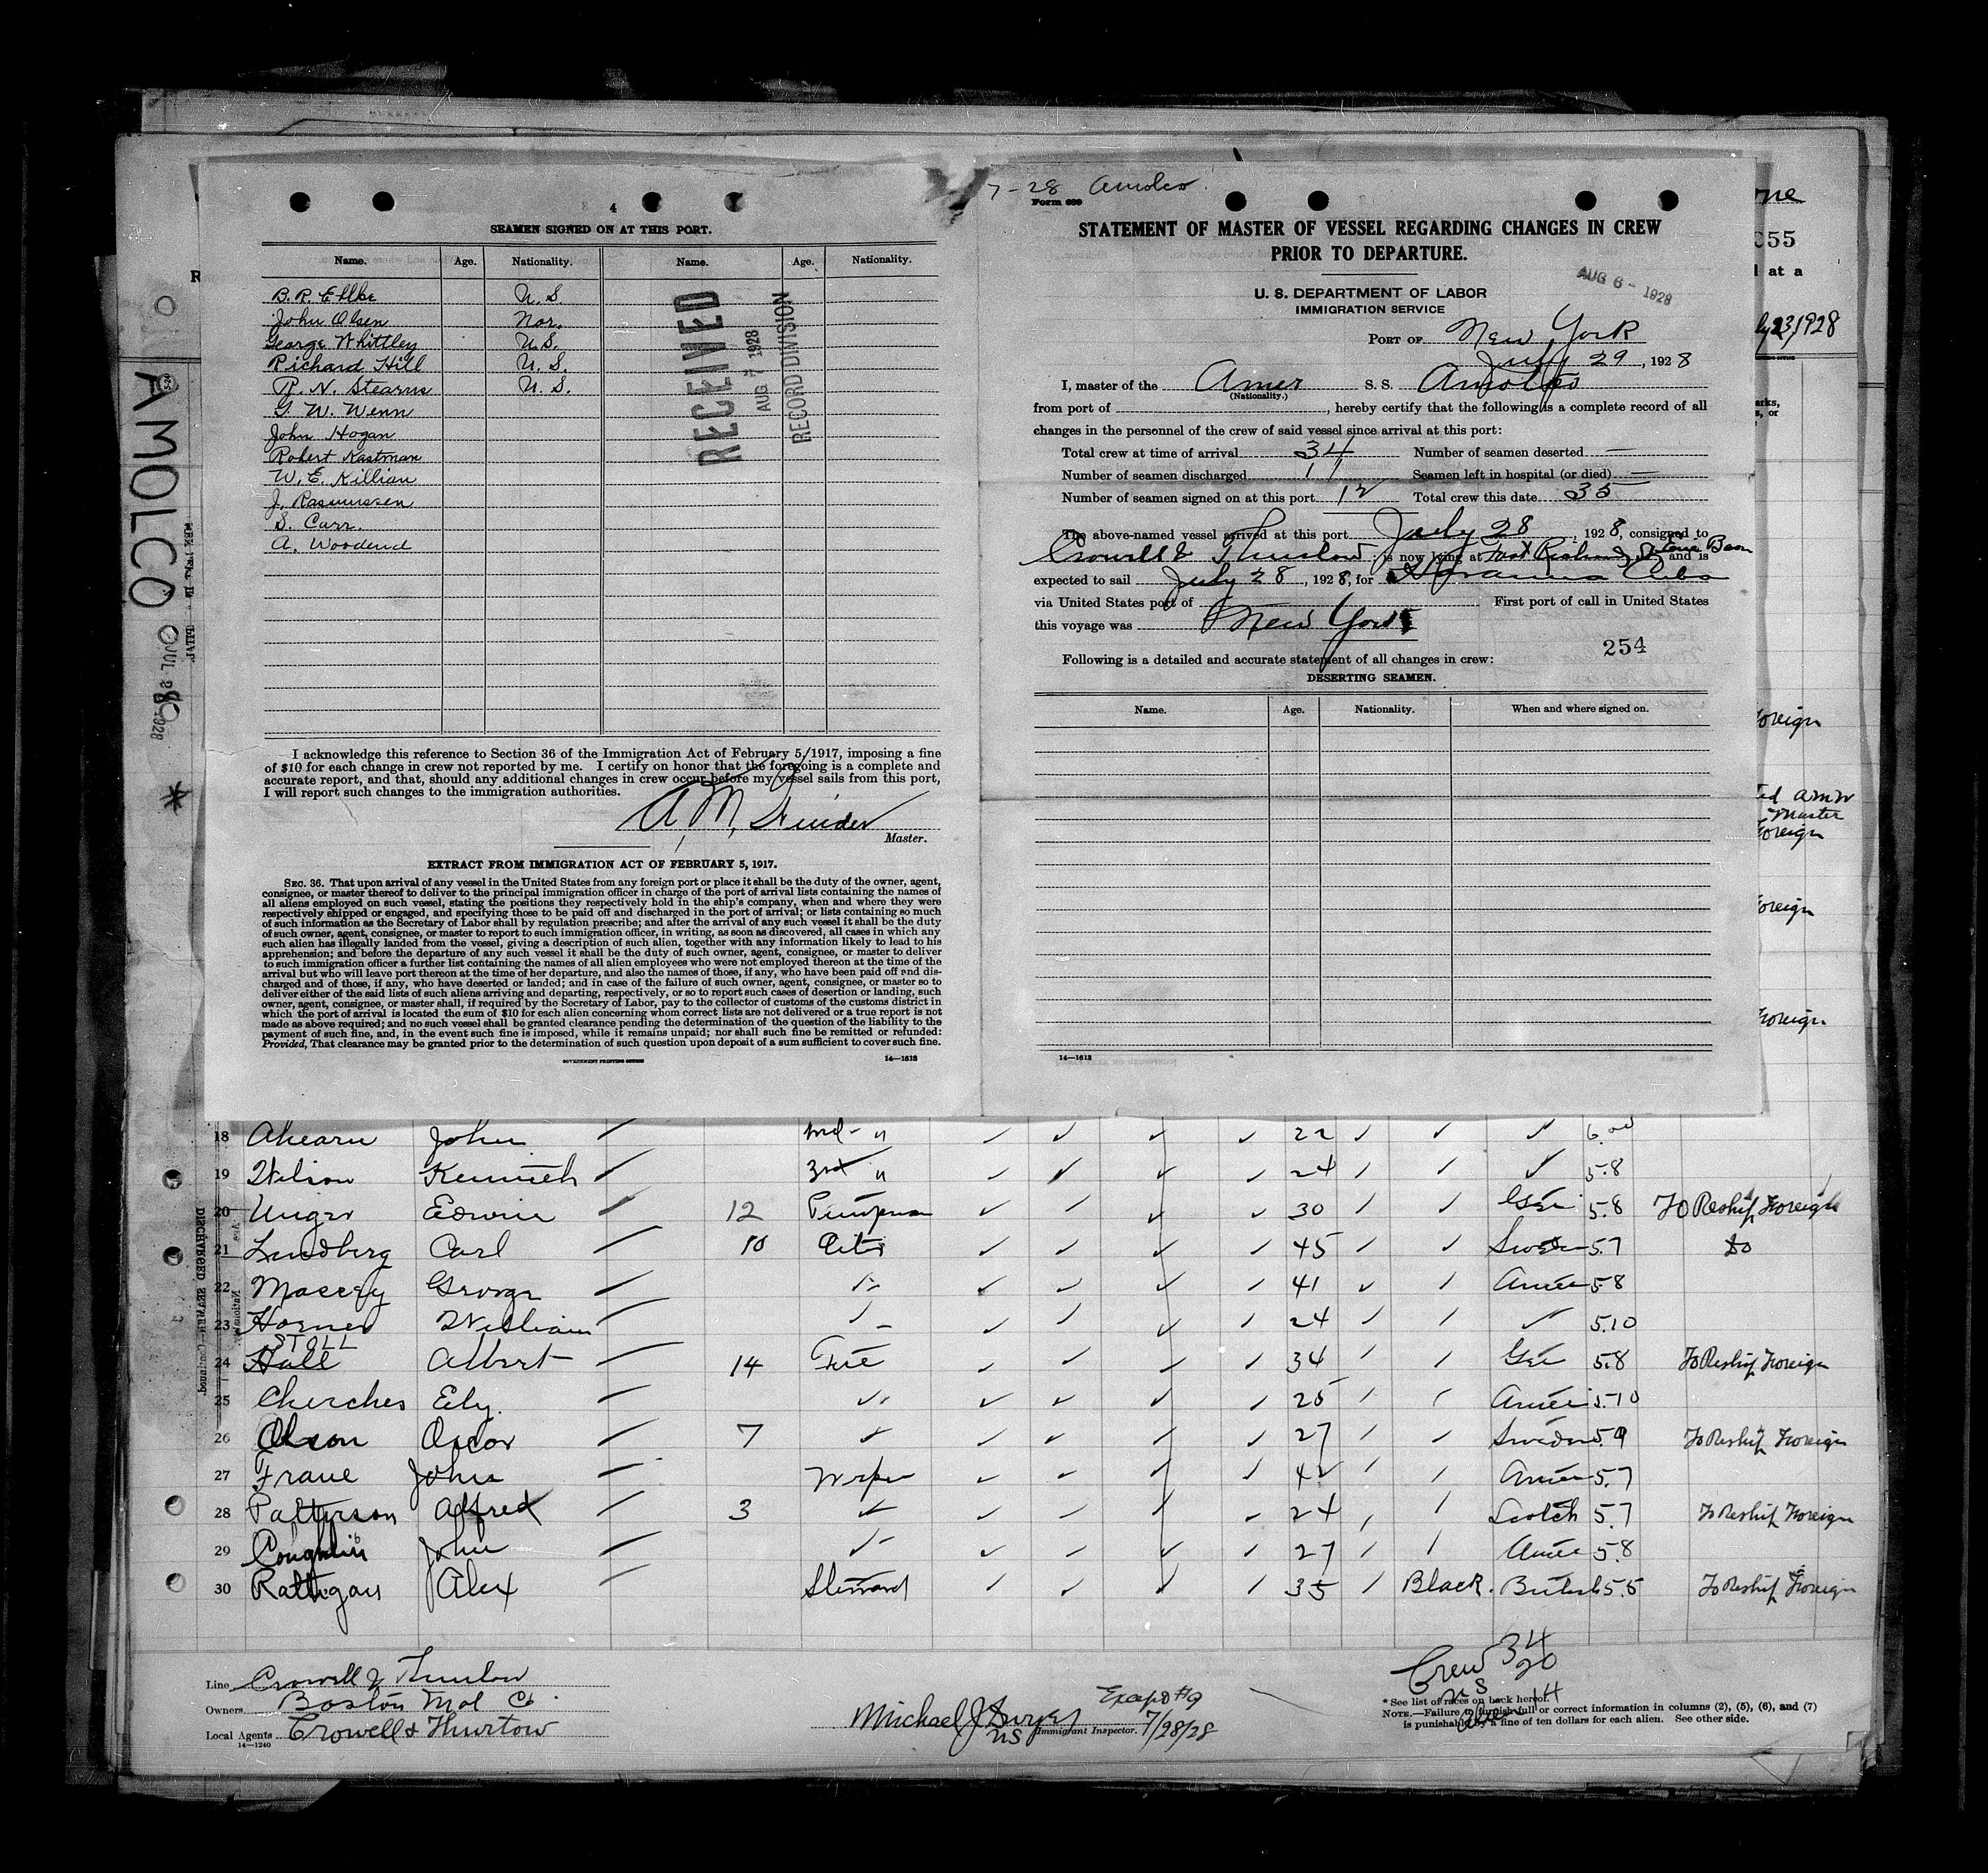 4
SEAMEN SIGNED ON AT THIS PORT.
Name. Age. Nationality. Name. Age. Nationality.
B. R. Ellke U. S.
John Olsen Nor.
George Whittley U.S.
Richard Hill U. S.
R. N. Stearns U. S.
G. W. Wenn
John Hogan
Robert Kastman
W. E. Killian
J. Rasmussen
S. Carr.
A. Woodend
RECEIVED
AUG 7 1928
RECORD DIVISION
I acknowledge this reference to Section 36 of the Immigration Act of February 5/1917, imposing a fine
of $10 for each change in crew not reported by me. I certify on honor that the foregoing is a complete and
accurate report, and that, should any additional changes in crew occur before my vessel sails from this port,
I will report such changes to the immigration authorities.
A. M.
Master.
EXTRACT FROM IMMIGRATION ACT OF FEBRUARY 5, 1917.
SEC. 36. That upon arrival of any vessel in the United States from any foreign port or place it shall be the duty of the owner, agent,
consignee, or master thereof to deliver to the principal immigration officer in charge of the port of arrival lists containing the names of
all aliens employed on such vessel, stating the positions they respectively hold in the ship's company, when and where they were
respectively shipped or engaged, and specifying those to be paid off and discharged in the port of arrival; or lists containing so much
of such information as the Secretary of Labor shall by regulation prescribe; and after the arrival of any such vessel it shall be the duty
of such owner, agent, consignee, or master to report to such immigration officer, in writing, as soon as discovered, all cases in which any
such alien has illegally landed from the vessel, giving a description of such alien, together with any information likely to lead to his
apprehension; and before the departure of any such vessel it shall be the duty of such owner, agent, consignee, or master to deliver
to such immigration officer a further list containing the names of all alien employees who were not employed thereon at the time of the
arrival but who will leave port thereon at the time of her departure, and also the names of those, if any, who have been paid off and dis-
charged and of those, if any, who have deserted or landed; and in case of the failure of such owner, agent, consignee, or master so to
deliver either of the said lists of such aliens arriving and departing, respectively, or so to report such cases of desertion or landing, such
owner, agent, consignee, or master shall, if required by the Secretary of Labor, pay to the collector of customs of the customs district in
which the port of arrival is located the sum of $10 for each alien concerning whom correct lists are not delivered or a true report is not
made as above required; and no such vessel shall be granted clearance pending the determination of the question of the liability to the
payment of such fine, and, in the event such fine is imposed, while it remains unpaid; nor shall such fine be remitted or refunded:
Provided, That clearance may be granted prior to the determination of such question upon deposit of a sum sufficient to cover such fine.
GOVERNMENT PRINTING OFFICE 14—1618
7-28 Amolco.
Form 689
STATEMENT OF MASTER OF VESSEL REGARDING CHANGES IN CREW
PRIOR TO DEPARTURE.
AUG 6 - 1928
U. S. DEPARTMENT OF LABOR
IMMIGRATION SERVICE
PORT OF New York
July 29, 1928
I, master of the Amer S. S. Amolco
(Nationality.)
from port of , hereby certify that the following is a complete record of all
changes in the personnel of the crew of said vessel since arrival at this port:
Total crew at time of arrival 34 Number of seamen deserted —
Number of seamen discharged 11 Seamen left in hospital (or died) —
Number of seamen signed on at this port 12 Total crew this date 35
The above-named vessel arrived at this port July 28, 1928, consigned to
Crowell & Thurlow is now lying at and is
expected to sail July 28, 1928, for Havanna Cuba
via United States port of First port of call in United States
this voyage was New York
254
Following is a detailed and accurate statement of all changes in crew:
DESERTING SEAMEN.
Name. Age. Nationality. When and where signed on.
14—1618
AMOLCO
JUL 28 1928
*
055
l at a
ly 23, 1928
oreign
Master
oreign
oreign
oreign
18 Ahearn John 22
19 Wilson Kenneth 3rd " 24 5.8
20 Unger Edwin 12 Pumpman 30 Ger 5.8 To Reship Foreign
21 Lundberg Carl 10 45 Sweden 5.7 do
22 Massey George 41 Amer 5.8
23 Horner William 24 5.10
STOLL
24 Hall Albert 14 Fire 34 Ger 5.8 To Reship Foreign
25 Cherches Ely. 25 Amer 5.10
26 Olson Oscar 7 27 Sweden 5.9 To Reship Foreign
27 Frane John Wiper 42 Amer 5.7
28 Patterson Alfred 3 24 Scotch 5.7 To Reship Foreign
29 Coughlin John 27 Amer 5.8
30 Rattigan Alex Steward 35 Black. British 5.5 To Reship Foreign
Line Crowell & Thurlow
Owners Boston Mol Co.
Local Agents Crowell & Thurlow
14—1240
Michael J.
Immigrant Inspector. 7/28/28
Crew 34
US 20
alien 14
* See list of races on back hereof.
NOTE.—Failure to furnish full or correct information in columns (2), (5), (6), and (7)
is punishable by a fine of ten dollars for each alien. See other side.